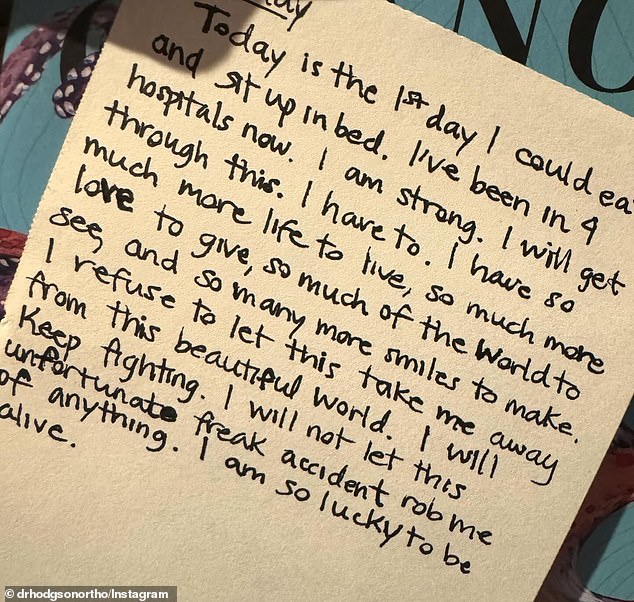 NO
Today is the 1st day I could ea
and sit up in bed. I've been in 4
hospitals now. I am strong. I will get
through this. I have to. I have so
much more life to live, so much more
love to give, so much of the World to
see, and so many more smiles to make.
I refuse to let this take me away
from this beautiful world. I will
Keep fighting. I will not let this
unfortunate freak accident rob me
of anything. I am so lucky to be
alive.
drhodgsonortho/Instagram